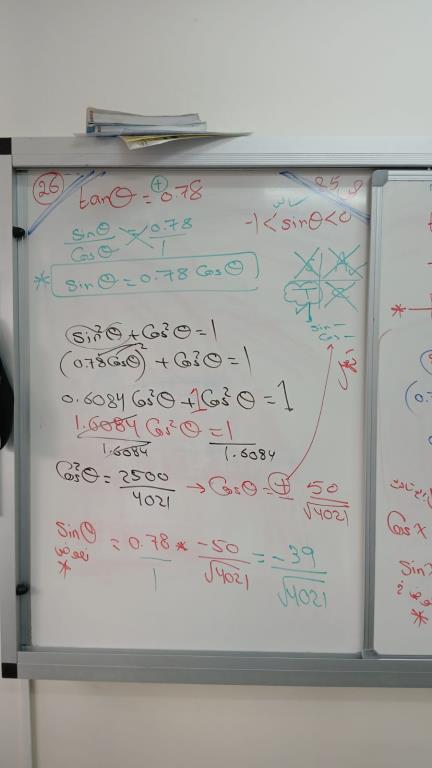 26
tanθ = 0.78
+
25
سالب
-1 < sinθ < 0
sinθ / cosθ = 0.78 / 1
* sinθ = 0.78 cosθ
S A
T C
sin -
cos -
sin²θ + cos²θ = 1
(0.78 cosθ)² + cos²θ = 1
0.6084 cos²θ + 1 cos²θ = 1
1.6084 cos²θ / 1.6084 = 1 / 1.6084
cos²θ = 2500 / 4021 → cosθ = ± 50 / √4021
sinθ = 0.78 / 1 * -50 / √4021 = -39 / √4021
نعوض
*
cos x
sin x
*